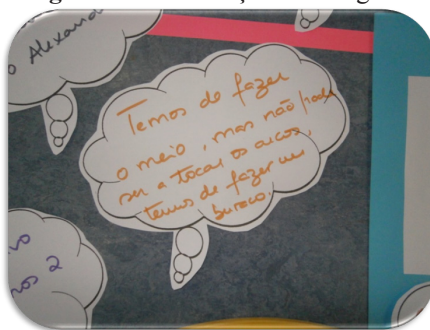 Alexand
Temos de fazer
o meio, mas não pode
ser a tocar os arcos,
temos de fazer um
buraco.
nos 2